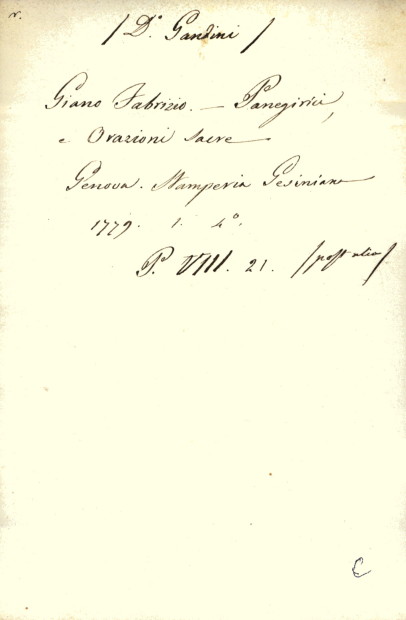 r.
/ D.º Gandini /
Giano Fabrizio. — Panegirici,
e Orazioni sacre
Genova. Stamperia Gesiniana
1779. 1. 4º.
P. VIII. 21. /post alia/
C